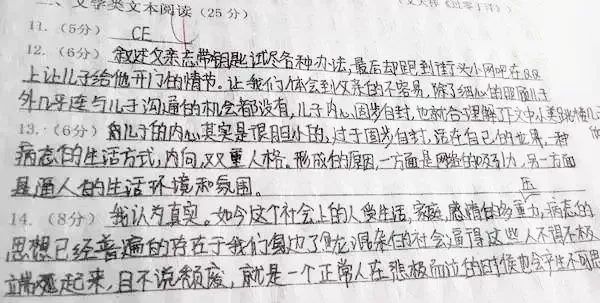 二、文学类文本阅读(25分)
11.(5分) CE
12.(6分) 叙述父亲忘带钥匙试尽各种办法,最后却跑到街头小网吧在QQ
上让儿子给他开门的情节。让我们体会到父亲的不容易,除了细心的照顾儿子
外几乎连与儿子沟通的机会都没有,儿子内心固步自封,也就合理解了文中小
13.(6分) 儿子的内心其实是很胆小的,过于固步自封,活在自己的世界,一种
病态的生活方式,内向,双重人格。形成的原因,一方面是网络的吸引力,另一方面
是逼人的生活环境和氛围。
14.(8分) 我认为真实。如今这个社会上的人受生活,家庭,感情的多重压力,病态的
思想已经普遍的存在于我们身边了,鱼龙混杂的社会逼得这些人不得不极
端起来,且不说颓废,就是一个正常人在悲极而泣的时候也会产生不可思